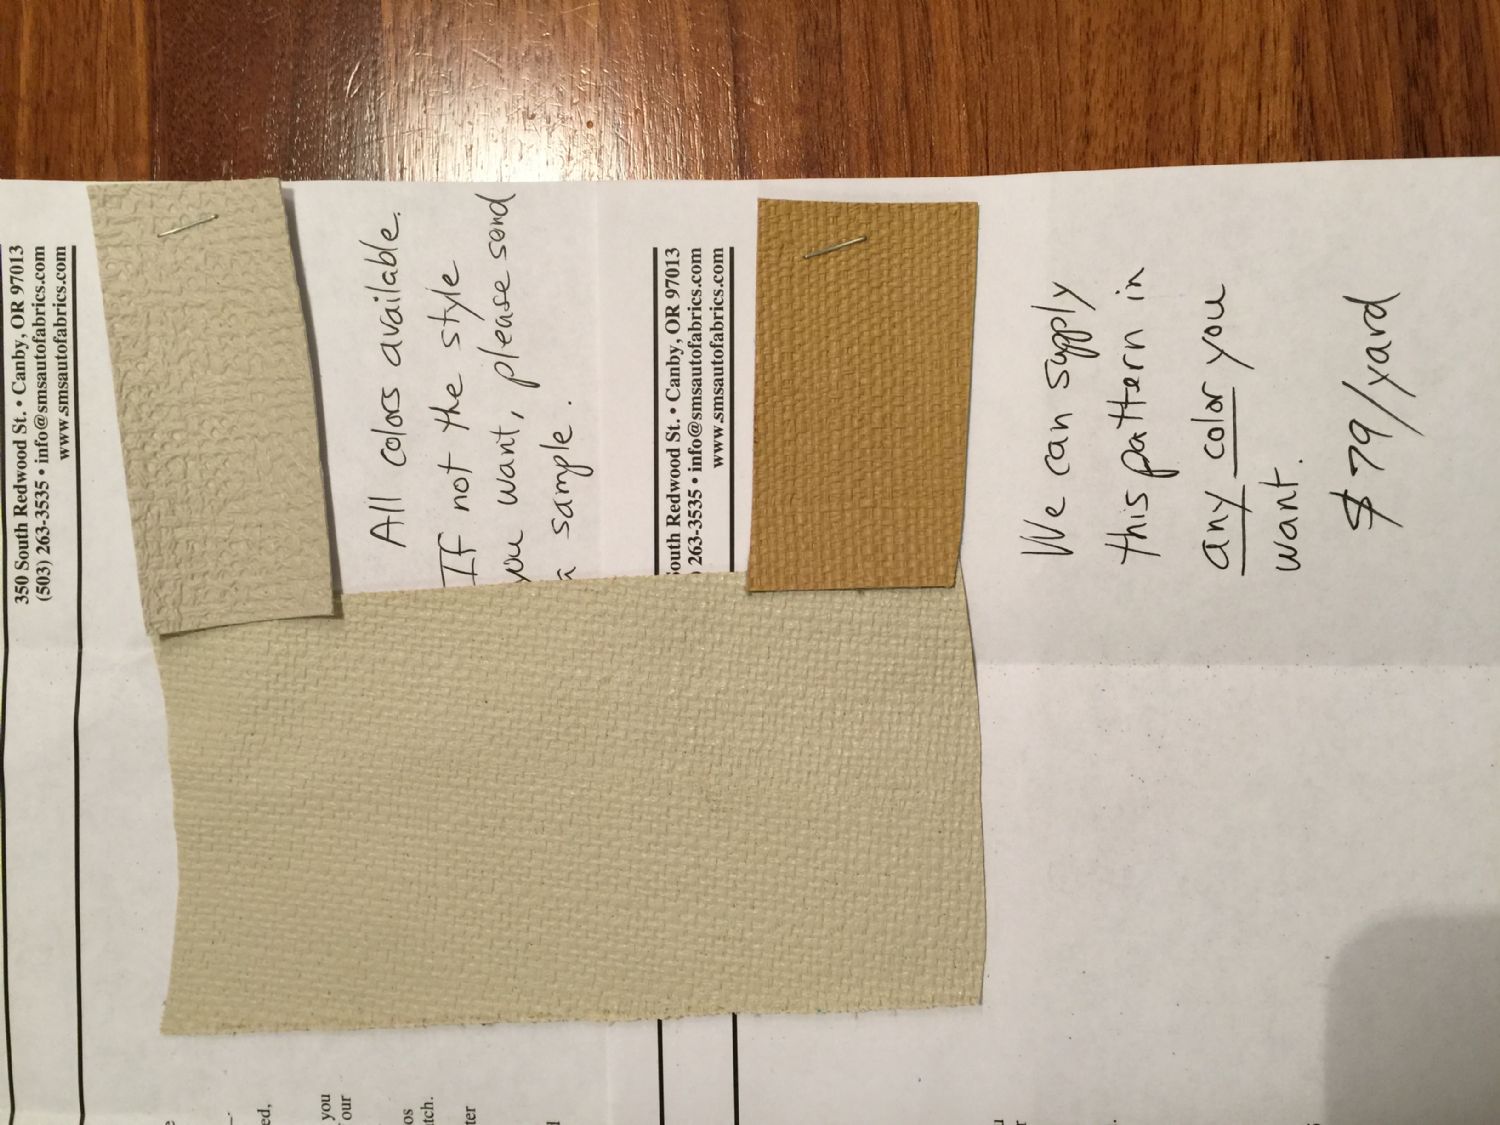 350 South Redwood St. • Canby, OR 97013
(503) 263-3535 • info@smsautofabrics.com
www.smsautofabrics.com
All colors available.
If not the style
you want, please send
a sample.
South Redwood St. • Canby, OR 97013
) 263-3535 • info@smsautofabrics.com
www.smsautofabrics.com
We can supply
this pattern in
any color you
want.
$79/yard
ed,
you
our
os
tch.
ter